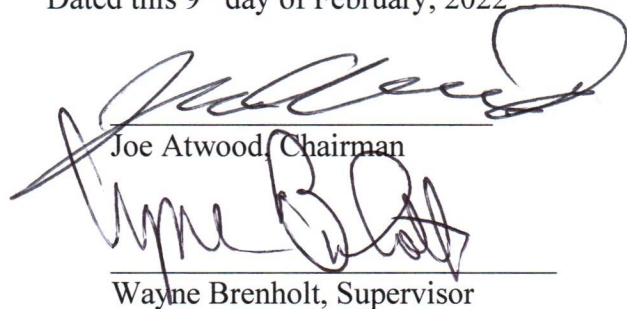 Dated this 9th day of February, 2022
Joe Atwood, Chairman
Wayne Brenholt
Wayne Brenholt, Supervisor